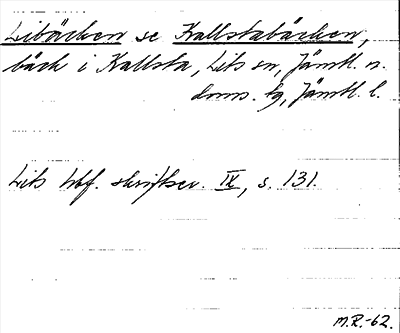 Libäcken se Kallstabäcken,
bäck i Kallsta, Lits sn, Jämtl. n.
doms. tg, Jämtl. l.
Lits hbf. skriftser. IV, s. 131.
M.R.-62.